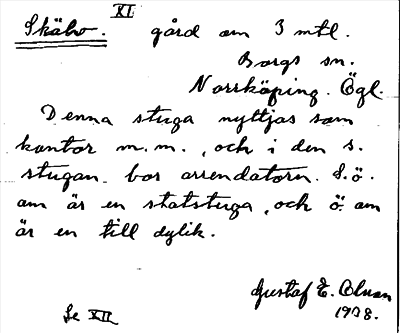 Skälv. XI gård om 3 mtl.
Borgs sn.
Norrköping. Ögl.
Denna stuga nyttjas som
kontor m.m., och i den s.
stugan bor arrendatorn. S.ö.
om är en statstuga, och ö. om
är en till dylik.
Gustaf E. Olsson
1908.
Se XII